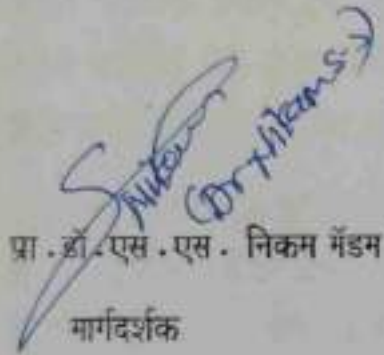 Nikam
(Dr Nikam S.)
प्रा.डॉ.एस.एस. निकम मॅडम
मार्गदर्शक